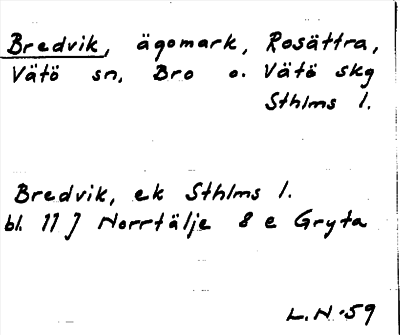 Bredvik, ägomark, Rosättra,
Vätö sn, Bro o. Vätö skg
Sthlms l.
Bredvik, ek Sthlms l.
bl. 11 J Norrtälje 8 e Gryta
L.N.59